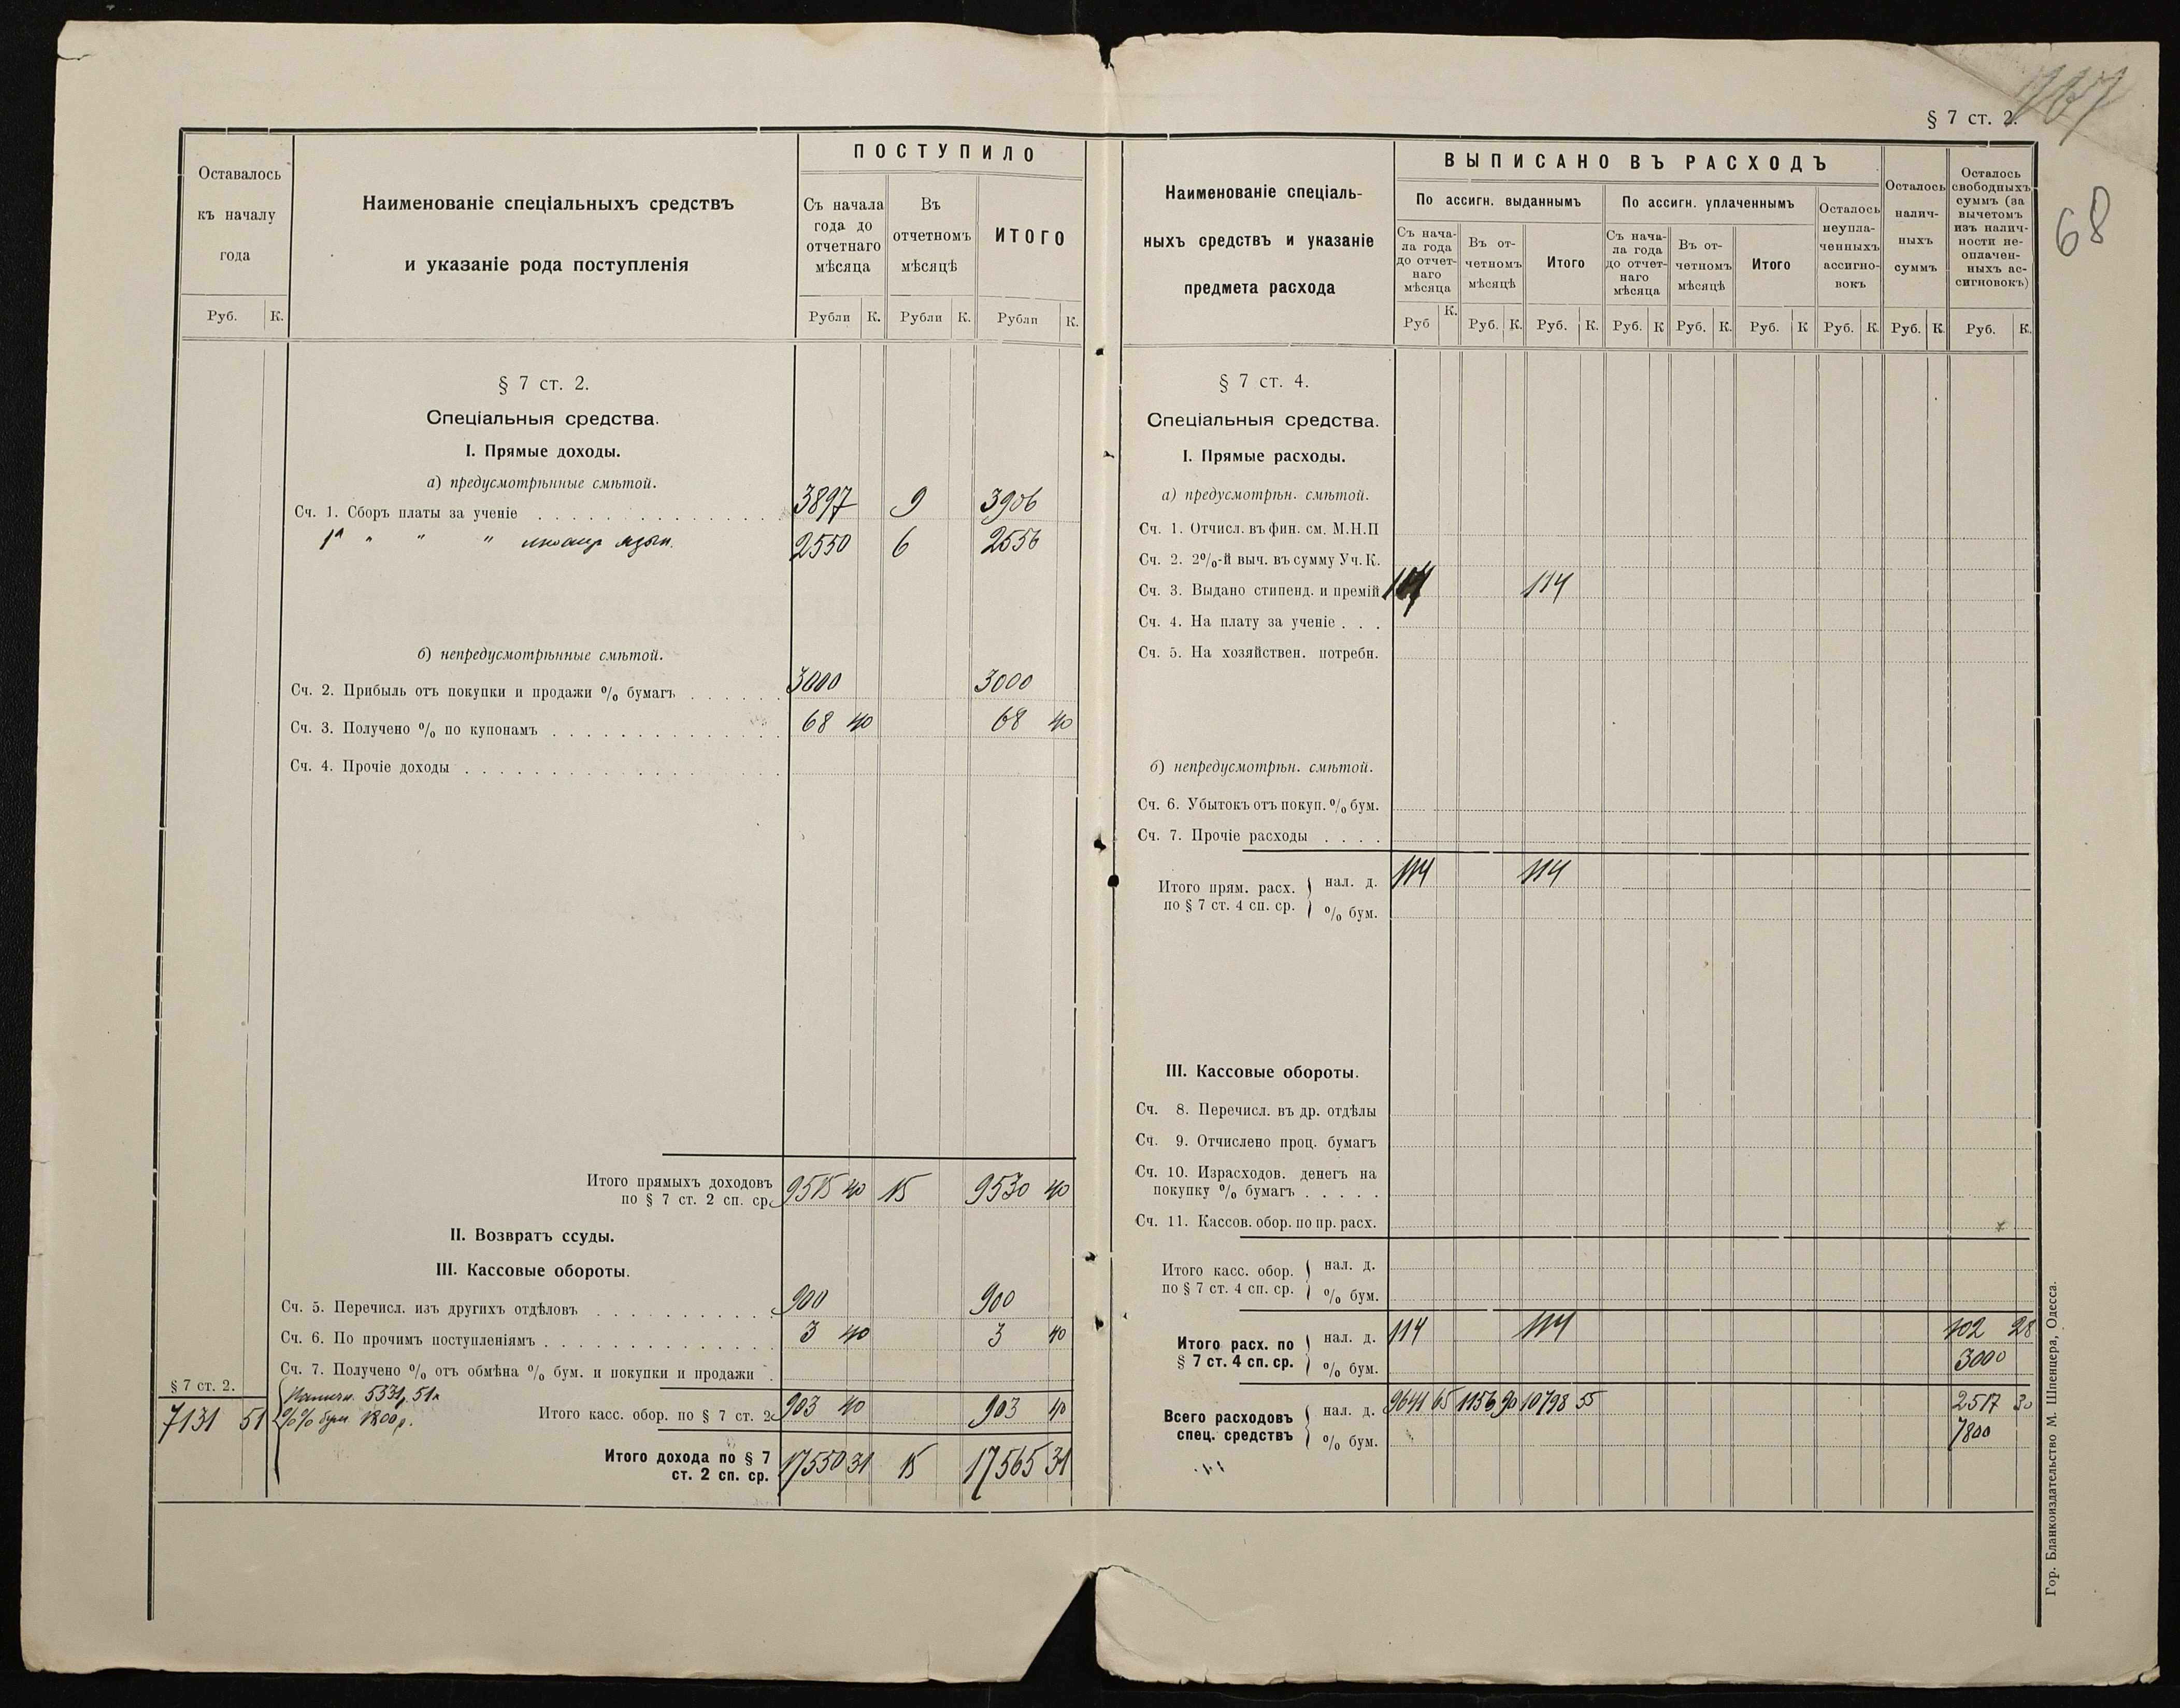 § 7 ст. 2.
68
Оставалось
къ началу
года
Руб. К.
Наименованіе спеціальныхъ средствъ
и указаніе рода поступленія
ПОСТУПИЛО
Съ начала
года до
отчетнаго
мѣсяца
Въ
отчетномъ
мѣсяцѣ
ИТОГО
Рубли К. Рубли К. Рубли К.
§ 7 ст. 2.
Спеціальныя средства.
I. Прямые доходы.
а) предусмотрѣнные смѣтой.
Сч. 1. Сборъ платы за ученіе 3897 9 3906
" " " 2550 6 2556
б) непредусмотрѣнные смѣтой.
Сч. 2. Прибыль отъ покупки и продажи % бумагъ 3000 3000
Сч. 3. Получено % по купонамъ 68 40 68 40
Сч. 4. Прочіе доходы
Итого прямыхъ доходовъ
по § 7 ст. 2 сп. ср. 9515 40 15 9530 40
II. Возвратъ ссуды.
III. Кассовые обороты.
Сч. 5. Перечисл. изъ другихъ отдѣловъ 900 900
Сч. 6. По прочимъ поступленіямъ 3 40 3 40
Сч. 7. Получено % отъ обмѣна % бум. и покупки и продажи
§ 7 ст. 2.
5331 р. 51 к
7131 51 %% бум 1800 р.
Итого касс. обор. по § 7 ст. 2 903 40 903 40
Итого дохода по § 7
ст. 2 сп. ср. 17550 31 15 17565 31
Наименованіе спеціаль-
ныхъ средствъ и указаніе
предмета расхода
ВЫПИСАНО ВЪ РАСХОДЪ
По ассигн. выданнымъ
Съ нача-
ла года
до отчет-
наго
мѣсяца
Въ от-
четномъ
мѣсяцѣ
Итого
По ассигн. уплаченнымъ
Съ нача-
ла года
до отчет-
наго
мѣсяца
Въ от-
четномъ
мѣсяцѣ
Итого
Осталось
неупла-
ченныхъ
ассигно-
вокъ
Осталось
налич-
ныхъ
суммъ
Осталось
свободныхъ
суммъ (за
вычетомъ
изъ налич-
ности не-
оплачен-
ныхъ ас-
сигновокъ)
Руб К. Руб. К. Руб. К. Руб. К Руб. К. Руб. К Руб. К. Руб. К. Руб. К.
§ 7 ст. 4.
Спеціальныя средства.
I. Прямые расходы.
а) предусмотрѣн. смѣтой.
Сч. 1. Отчисл. въ фин. см. М.Н.П
Сч. 2. 2%-й выч. въ сумму Уч. К.
Сч. 3. Выдано стипенд. и премій 114 114
Сч. 4. На плату за ученіе
Сч. 5. На хозяйствен. потребн.
б) непредусмотрѣн. смѣтой.
Сч. 6. Убытокъ отъ покуп. % бум.
Сч. 7. Прочіе расходы
Итого прям. расх.
по § 7 ст. 4 сп. ср.
нал. д. 114 114
% бум.
III. Кассовые обороты.
Сч. 8. Перечисл. въ др. отдѣлы
Сч. 9. Отчислено проц. бумагъ
Сч. 10. Израсходов. денегъ на
покупку % бумагъ
Сч. 11. Кассов. обор. по пр. расх.
Итого касс. обор.
по § 7 ст. 4 сп. ср.
нал. д.
% бум.
Итого расх. по
§ 7 ст. 4 сп. ср.
нал. д. 114 114 28
% бум. 3000
Всего расходовъ
спец. средствъ
нал. д. 9641 65 1156 90 10798 55 2517 30
% бум. 7800
Гор. Бланкоиздательство М. Шпенцера, Одесса.